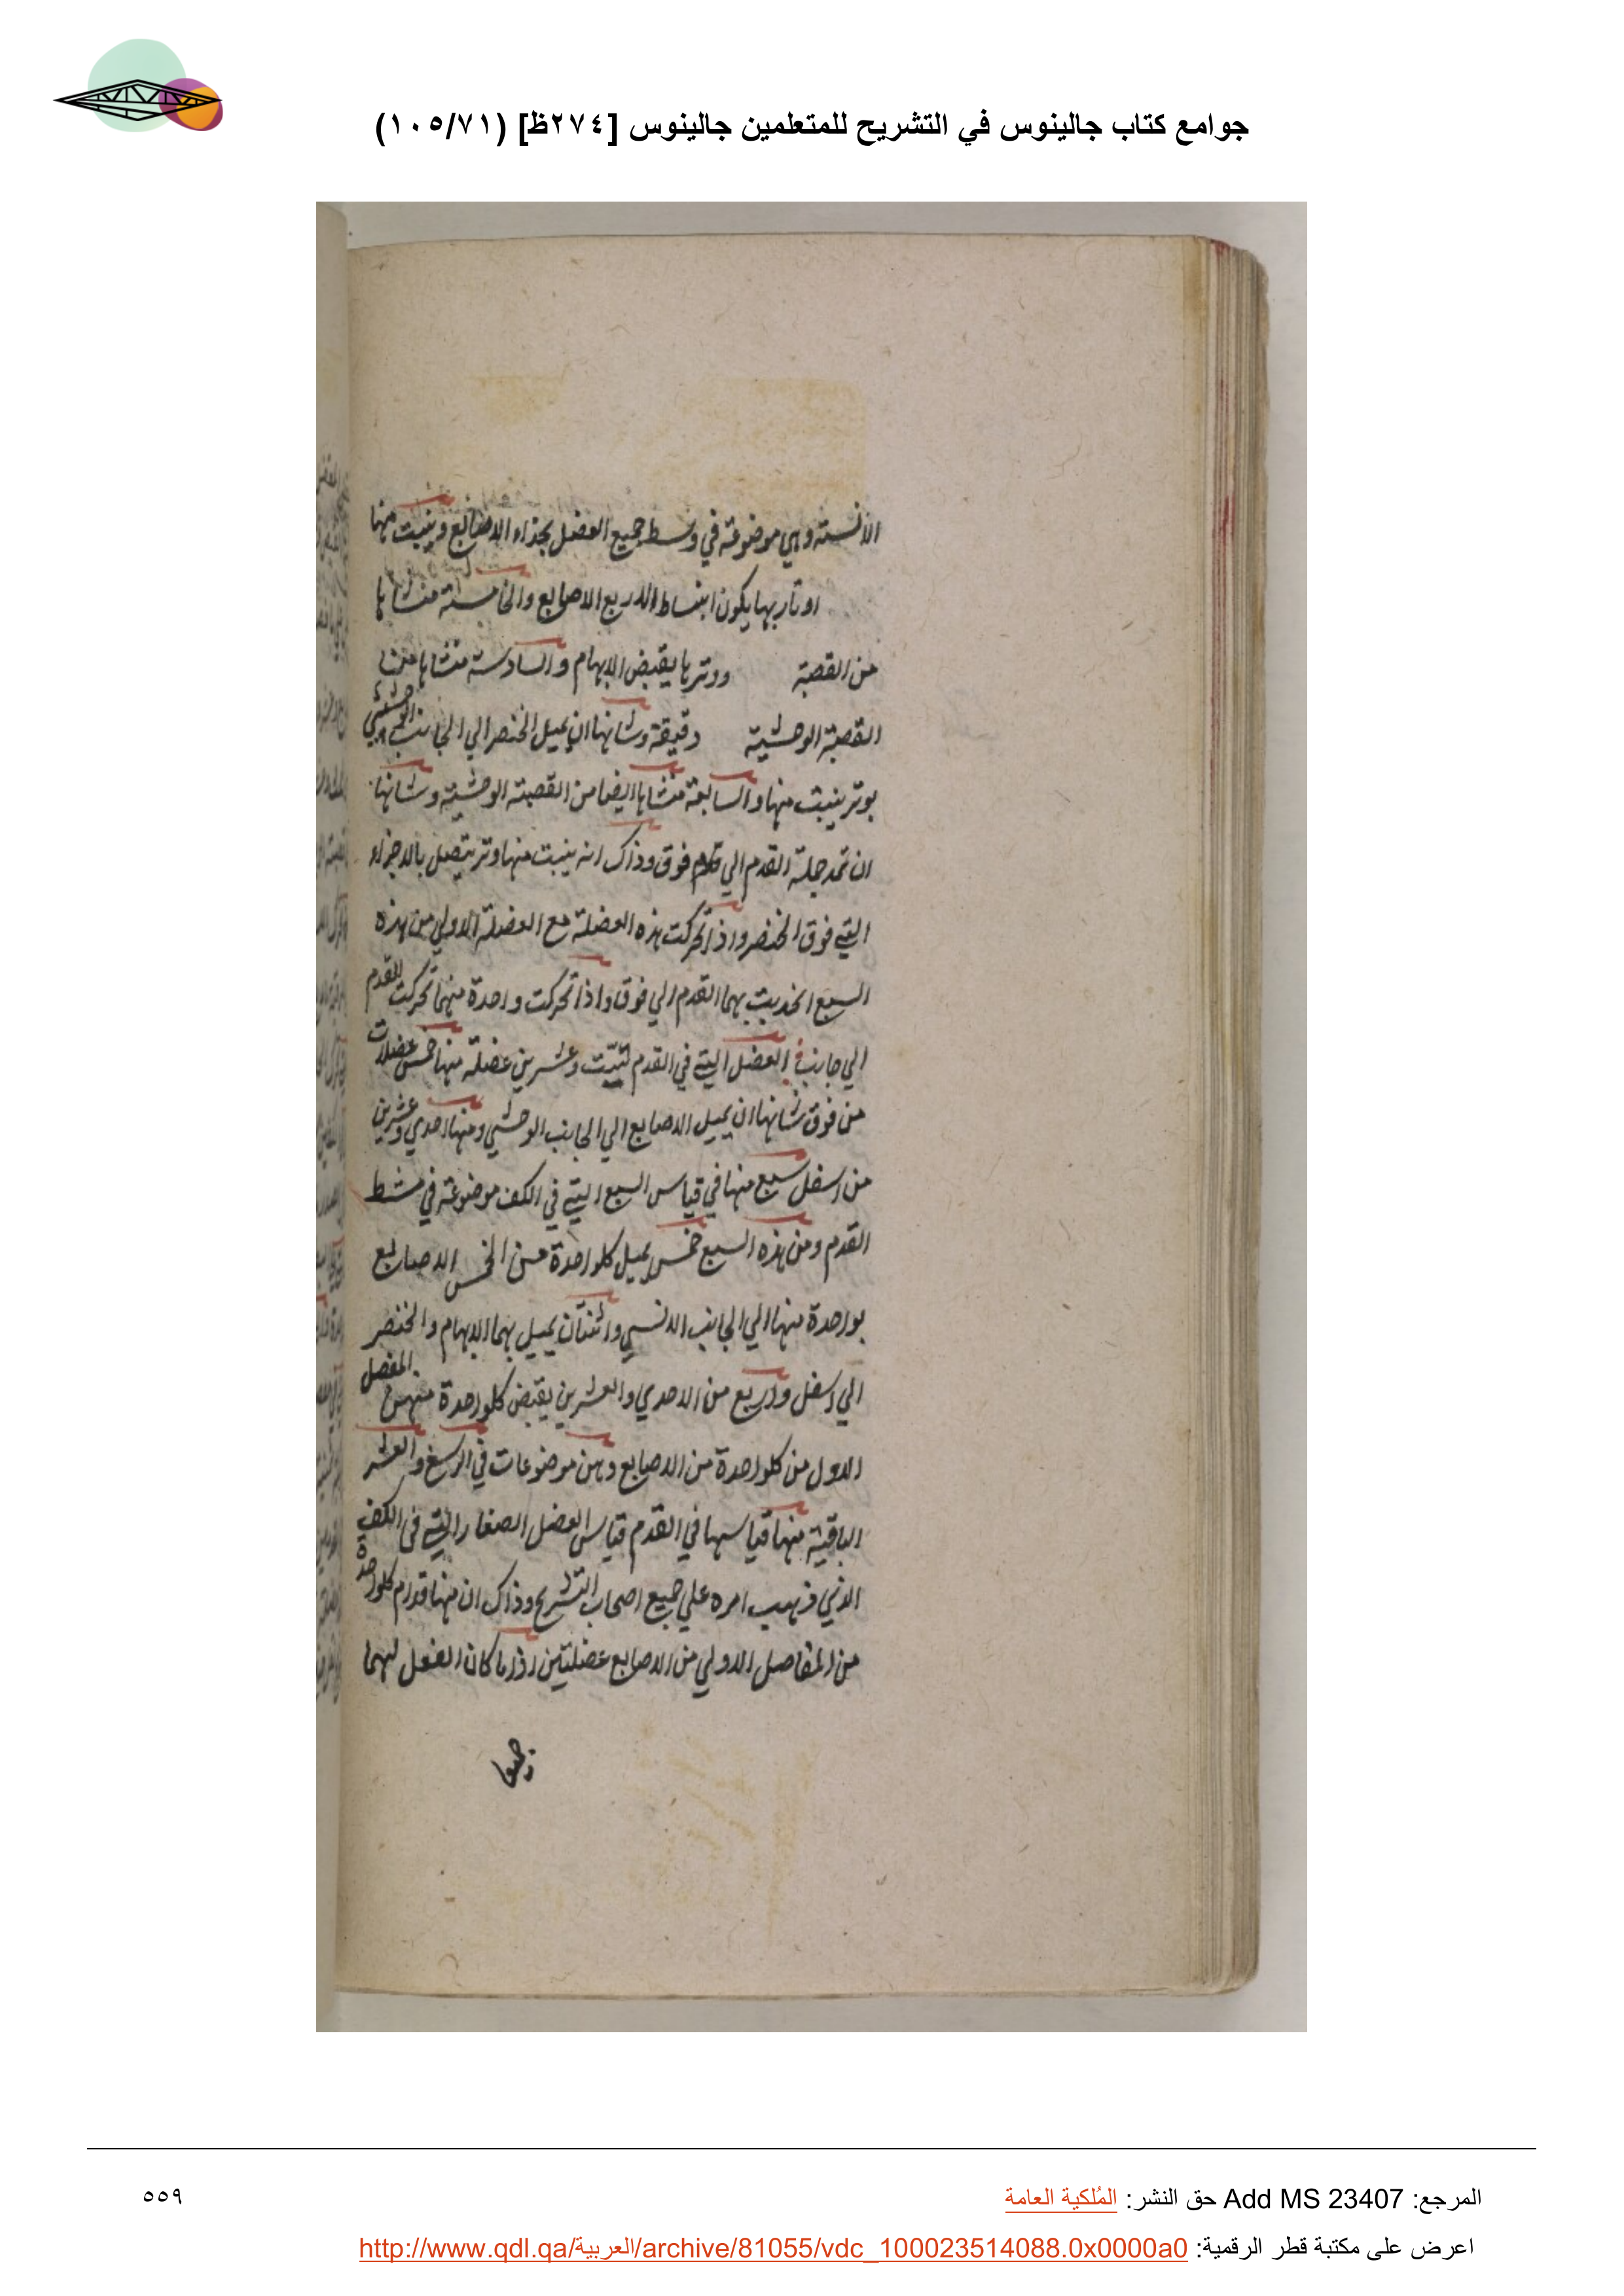 جوامع كتاب جالينوس في التشريح للمتعلمين جالينوس [٢٧٤ظ] (١٠٥/٧١)
الانسية وهي موضوعة في وسط جميع العضل بحذاء الاصابع وينبت منها
اوتار بها يكون انبساط الاربع الاصابع والخامسة منشاها
من القصبة ووترها يقبض الابهام والسادسة منشاها من
القصبة الوحشية دقيقة وشانها ان يميل الخنصر الي الجانب الوحشي
بوتر ينبت منها والسابعة منشاها ايضا من القصبة الوحشية وشانها
ان تمد جملة القدم الي فوق وذاك انه ينبت منها وتر يتصل بالاجزاء
التي فوق الخنصر واذا تحركت هذه العضلة مع العضلة الاولي من هذه
السبع انجذبت بهما القدم الي فوق واذا تحركت واحدة منهما تحركت القدم
الي جانب العضل التي في القدم ستة وعشرين عضلة منها خمس عضلات
من فوق شانها ان يميل الاصابع الي الجانب الوحشي ومنها احدي وعشرين
من اسفل سبع منها في قياس السبع التي في الكف موضوعة في مشط
القدم ومن هذه السبع خمس يميل كلواحدة من الخمس الاصابع
بواحدة منها الي الجانب الانسي واثنتان يميل بهما الابهام والخنصر
الي اسفل واربع من الاحدي والعشرين يقبض كلواحدة منهن المفصل
الاول من كلواحدة من الاصابع وهن موضوعات في الرسغ والعشر
الباقية منها قياسها في القدم قياس العضل الصغار التي في الكف
الذي ذهب امره علي جميع اصحاب التشريح وذاك ان منها قدام كلواحدة
من المفاصل الاولي من الاصابع عضلتين اذا ما كان الفعل لهما
جميعا
المرجع: Add MS 23407 حق النشر: المُلكية العامة
٥٥٩
اعرض على مكتبة قطر الرقمية: http://www.qdl.qa/العربية/archive/81055/vdc_100023514088.0x0000a0